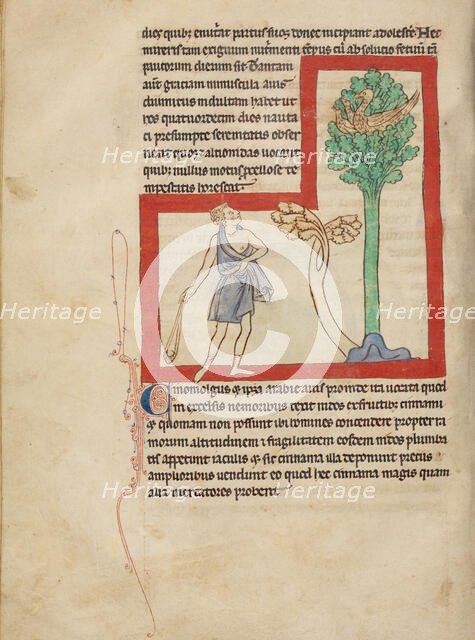 dies quibꝫ enutriat partus suos donec incipiant adolescẽ. Hec
muneris tam exiguum nutrimenti tẽpus cũ absolutio fetuum tã
paucorum dierum sit. Tantam
autẽ graciam minuscula auis
diuinitus indultam habet ut
hos quatuordecim dies nauta
ci presumpte serenitatis obser
uent quos altionidas uocant
quibꝫ nullus motus procellose te
mpestatis horescat.
Cinomolgus ⁊ ipsa arabie auis proinde ita uocata quod
in excelsis nemoribus texit nidos exfructibꝫ cinnami
⁊ quoniam non possunt ibi homines conscendere propter ra
morum altitudinem ⁊ fragilitatem eosdem nidos plumba
tis appetunt iaculis ⁊ sic cinnama illa deponunt precius
amplioribus uendunt eo quod hec cinnama magis quam
alia mercatores probent.
Heritage
Heritage
Heritage
Heritage
Heritage
Heritage
Heritage
Heritage